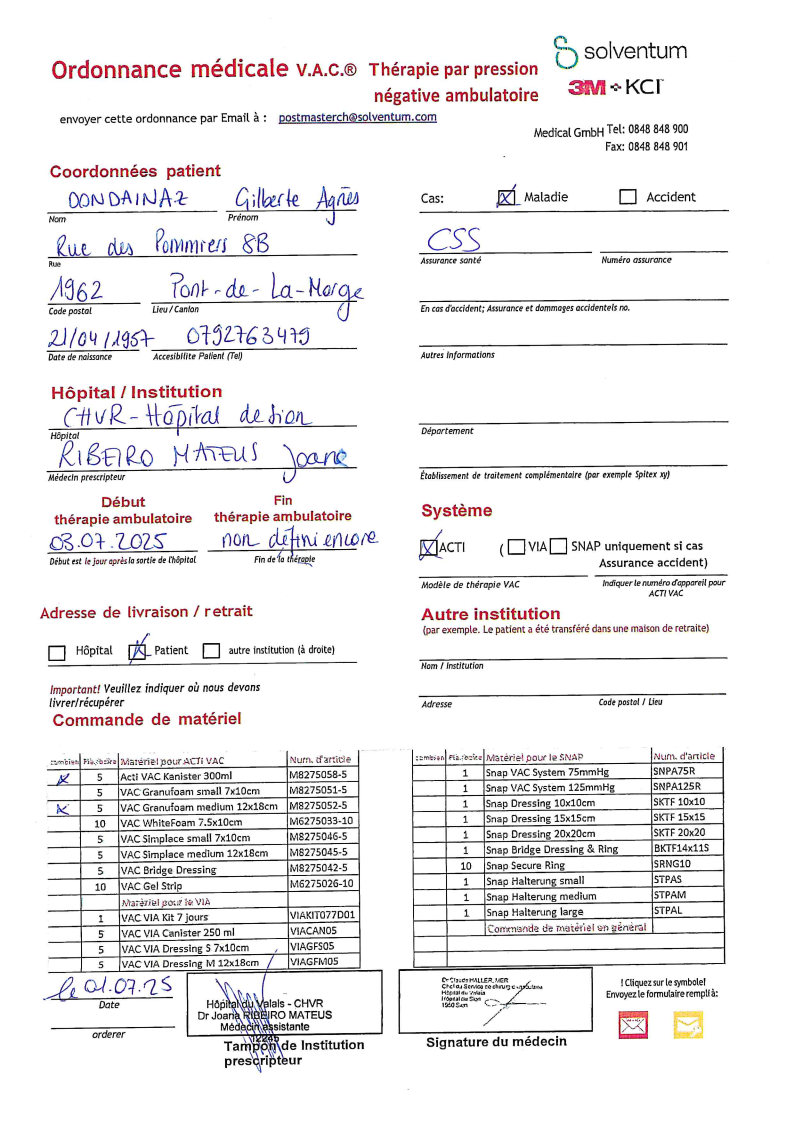 solventum
3M KCI
Ordonnance médicale V.A.C.® Thérapie par pression
négative ambulatoire
envoyer cette ordonnance par Email à : postmasterch@solventum.com
Medical GmbH Tel: 0848 848 900
Fax: 0848 848 901
Coordonnées patient
DONDAINAZ Gilberte Agnès
Nom Prénom
Rue des Pommiers 8B
Rue
1962 Pont-de-La-Morge
Code postal Lieu / Canton
21/04/1957 0792763479
Date de naissance Accesibilite Patient (Tel)
Cas: Maladie Accident
CSS
Assurance santé Numéro assurance
En cas d'accident; Assurance et dommages accidentels no.
Autres informations
Hôpital / Institution
CHVR - Hôpital de Sion
Hôpital
RIBEIRO MATEUS Joane
Médecin prescripteur
Département
Établissement de traitement complémentaire (par exemple Spitex xy)
Début
thérapie ambulatoire
03.07.2025
Début est le jour après la sortie de l'hôpital
Fin
thérapie ambulatoire
non défini encore
Fin de la thérapie
Système
ACTI ( VIA SNAP uniquement si cas
Assurance accident)
Modèle de thérapie VAC
Indiquer le numéro d'appareil pour
ACTI VAC
Adresse de livraison / retrait
Hôpital Patient autre institution (à droite)
Important! Veuillez indiquer où nous devons
livrer/récupérer
Autre institution
(par exemple. Le patient a été transféré dans une maison de retraite)
Nom / Institution
Adresse Code postal / Lieu
Commande de matériel
combien Pla./boîte Matériel pour ACTI VAC Num. d'article
x 5 Acti VAC Kanister 300ml M8275058-5
5 VAC Granufoam small 7x10cm M8275051-5
x 5 VAC Granufoam medium 12x18cm M8275052-5
10 VAC WhiteFoam 7.5x10cm M6275033-10
5 VAC Simplace small 7x10cm M8275046-5
5 VAC Simplace medium 12x18cm M8275045-5
5 VAC Bridge Dressing M8275042-5
10 VAC Gel Strip M6275026-10
Matériel pour le VIA
1 VAC VIA Kit 7 jours VIAKIT077D01
5 VAC VIA Canister 250 ml VIACAN05
5 VAC VIA Dressing S 7x10cm VIAGFS05
5 VAC VIA Dressing M 12x18cm VIAGFM05
combien Pla./boîte Matériel pour le SNAP Num. d'article
1 Snap VAC System 75mmHg SNPA75R
1 Snap VAC System 125mmHg SNPA125R
1 Snap Dressing 10x10cm SKTF 10x10
1 Snap Dressing 15x15cm SKTF 15x15
1 Snap Dressing 20x20cm SKTF 20x20
1 Snap Bridge Dressing & Ring BKTF14x11S
10 Snap Secure Ring SRNG10
1 Snap Halterung small STPAS
1 Snap Halterung medium STPAM
1 Snap Halterung large STPAL
Commande de matériel en général
le 01.07.25
Date
orderer
Hôpital du Valais - CHVR
Dr Joana RIBEIRO MATEUS
Médecin assistante
Tampon de Institution
prescripteur
Dr Claude HALLER, MER
Chef du Service de chirurgie
Hôpital du Valais
Hôpital de Sion
1950 Sion
Signature du médecin
! Cliquez sur le symbole!
Envoyez le formulaire rempli à: